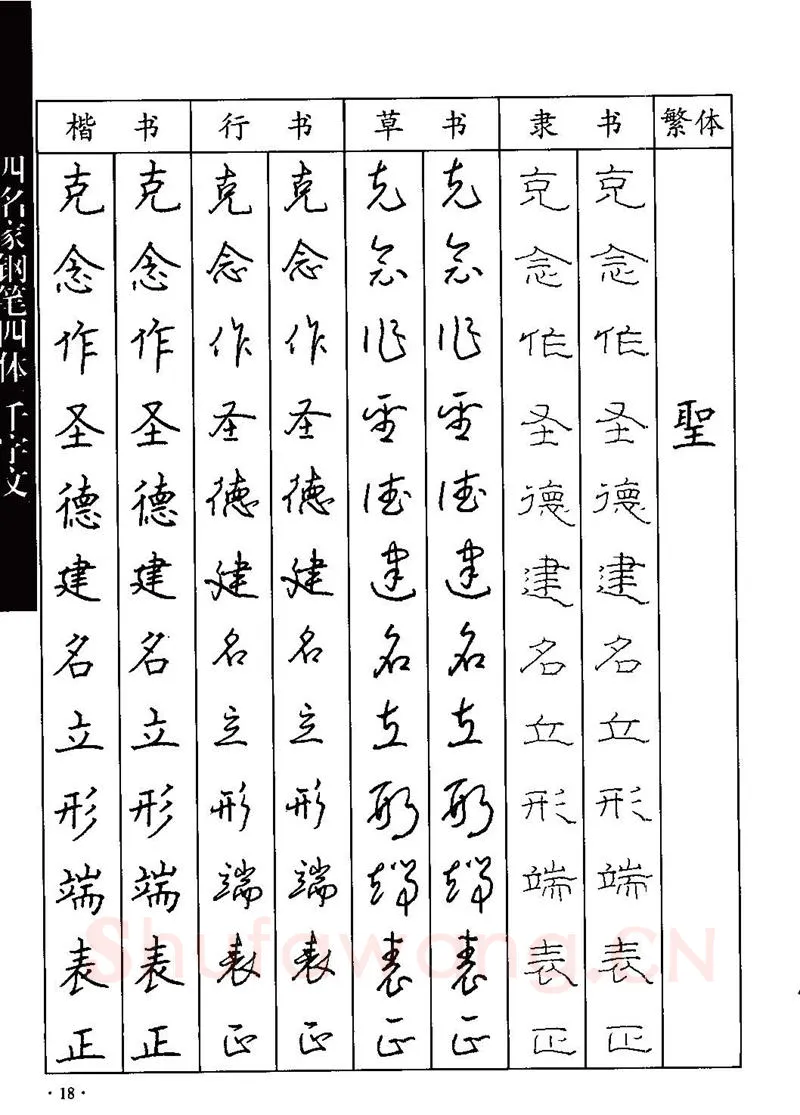 四名家钢笔四体 千字文
楷书 行书 草书 隶书 繁体
克念作圣德建名立形端表正
克念作圣德建名立形端表正
克念作圣德建名立形端表正
克念作圣德建名立形端表正
克念作圣德建名立形端表正
克念作圣德建名立形端表正
克念作圣德建名立形端表正
克念作圣德建名立形端表正
聖
Shufawang.CN
·18·